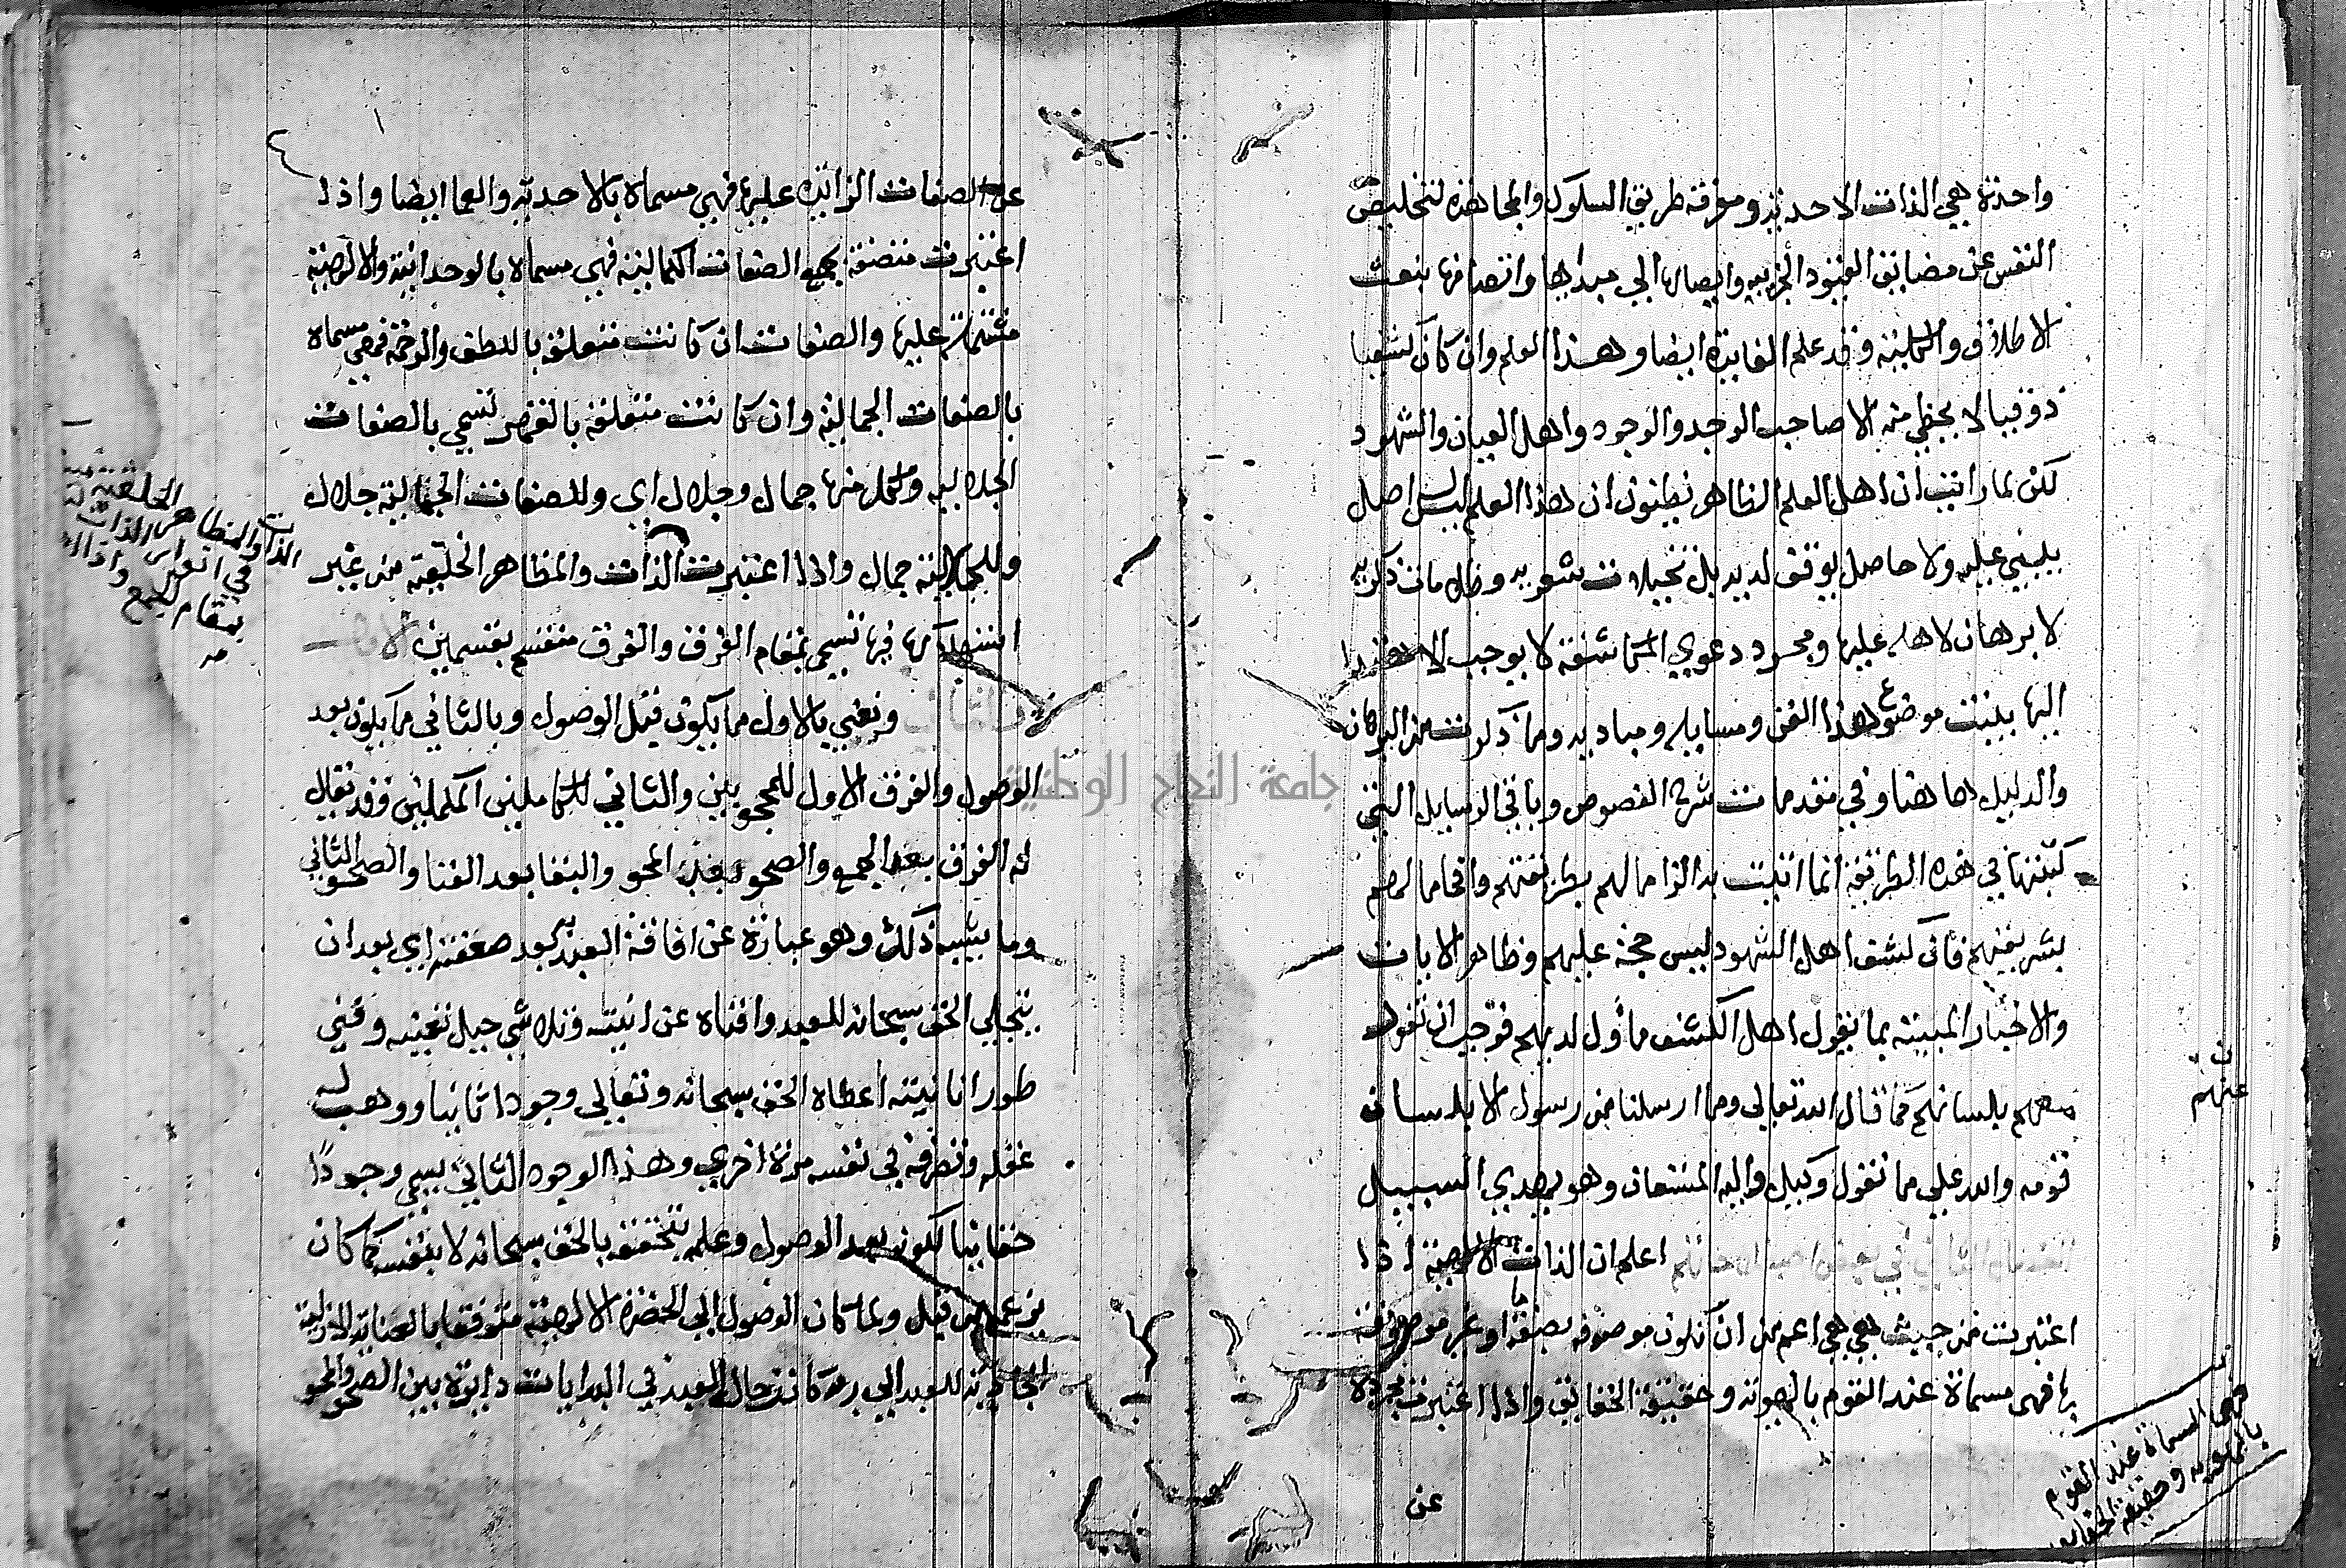 واحدة هي الذات الاحدية ومعرفة طريق السلوك والمجاهدة لتخليص
النفس عن مضايق القيود الجزيية وايصالها الي مبداها واتصافها بنعت
الاطلاق والكلية وقد علم الفايدة ايضا وهذا العلم وان كان كشفيا
ذوقيا لا يحظي منه الا صاحب الوجد والوجود واهل العيان والشهود
لكن لما رايت ان اهل العلم الظاهر يظنون ان هذا العلم ليس له اصل
يبتني عليه ولا حاصل يوقف لديه بل تخيلات شعريه وطامات ذكريه
لا برهان لاهله عليها ومجرد دعوي المكاشفة لا يوجب الاهتدا
اليها بينت موضوع هذا الفن ومسايله ومباديه وما ذكرت من البرهان
والدليل هاهنا وفي مقدمات شرح الفصوص وباقي الرسايل التي
كتبتها في هذه الطريقة انما اتيت به الزاما لهم بطريقتهم وافحاما لهم
بشريعتهم فان كشف اهل الشهود ليس حجة عليهم وظاهر الايات
والاخبار المبينة بما يقول اهل الكشف مأول لديهم فوجب ان نقول
معهم بلسانهم كما قال الله تعالي وما ارسلنا من رسول الا بلسان
قومه والله علي ما نقول وكيل واليه المستعان وهو يهدي السبيل
اعلم ان الذات الالهية اذا
اعتبرت من حيث هي هي اعم من ان تكون موصوفه بصفة ما او غير موصوفة
بها فهي مسماة عند القوم بالهوية وحقيقة الحقايق واذا اعتبرت مجردة
عن
عنهم
فهي المسماة عند القوم
بالهوية وحقيقة الحقايق
عن الصفات الزائدة عليها فهي مسماة بالاحدية والعما ايضا واذا
اعتبرت متصفة بجميع الصفات الكمالية فهي مسماة بالوحدانية والالهية
مشتملة عليها والصفات ان كانت متعلقة باللطف والرحمة فهي مسماة
بالصفات الجمالية وان كانت متعلقة بالقهر تسمي بالصفات
الجلاليه ولكل منها جمال وجلال اي وللصفات الجمالية جلال
وللجلالية جمال واذا اعتبرت الذات والمظاهر الخلقية من غير
استهلاكها فيها تسمي بمقام الفرق والفرق منقسم بقسمين
ونعني بالاول ما يكون قبل الوصول وبالثاني ما يكون بعد
الوصول والفرق الاول للمحجوبين والثاني للكاملين المكملين وقد يقال
له الفرق بعد الجمع والصحو بعد المحو والبقا بعد الفنا والصحو الثاني
وما يشبه ذلك وهو عبارة عن افاقة العبد بعد صعقته اي بعد ان
يتجلي الحق سبحانه للعبد وافناه عن انيته وتلاشي جبل تعينه وفني
طور انانيته اعطاه الحق سبحانه وتعالي وجودا ثانيا ووهب له
عقله وتصرفه في نفسه مرة اخري وهذا الوجود الثاني يسمي وجودًا
حقانيا لكونه بعد الوصول وعلمه بتحققه بالحق سبحانه لا بنفسه كما كان
يزعم من قبل ولما كان الوصول الي الحضرة الالهية متوقفا بالعناية الازلية
الجاذبة للعبد الي ربه كانت حال العبد في البدايات دايرة بين الصحو والمحو
الذات والمظاهر الخلقية
بمقام الجمع واذا